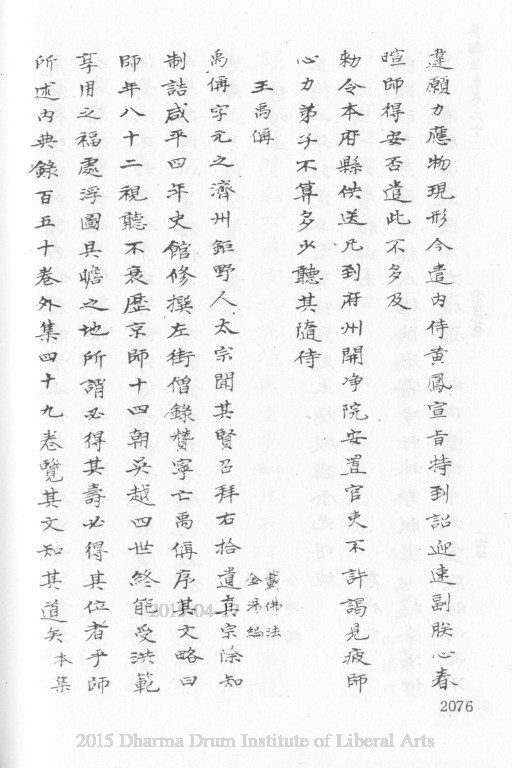 違願力應物現形今遣內侍黃鳳宣旨特到詔迎速副朕心春
暄師得安否遣此不多及
勅令本府縣供送凡到府州開淨院安置官吏不許謁見疲師
心力弟子不算多少聽其隨侍
王禹偁
載佛法
金湯編
禹偁字元之濟州鉅野人太宗聞其賢召拜右拾遺真宗除知
制誥咸平四年史館修撰左街僧錄贊寧亡禹偁序其文略曰
師年八十二視聽不衰歷京師十四朝吳越四世終能受洪範
享用之福處浮圖具瞻之地所謂必得其壽必得其位者乎師
所述內典錄百五十卷外集四十九卷覽其文知其道矣 本集
2076
2015 Dharma Drum Institute of Liberal Arts